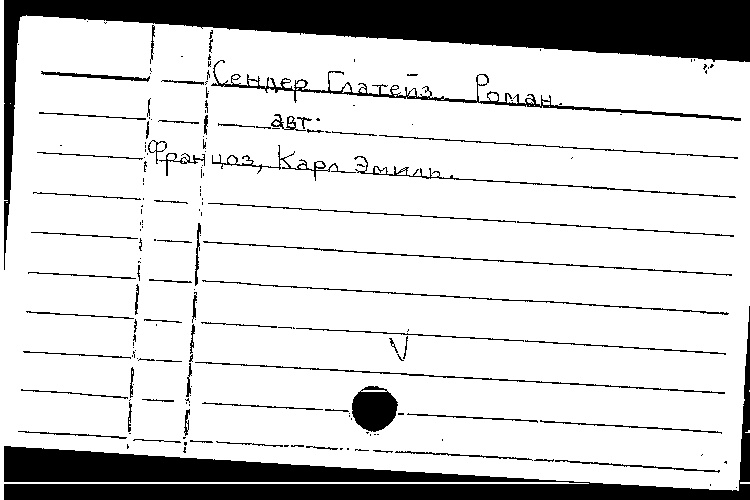 Сендер Глатейз. Роман.
авт:
Француз, Карл Эмиль.